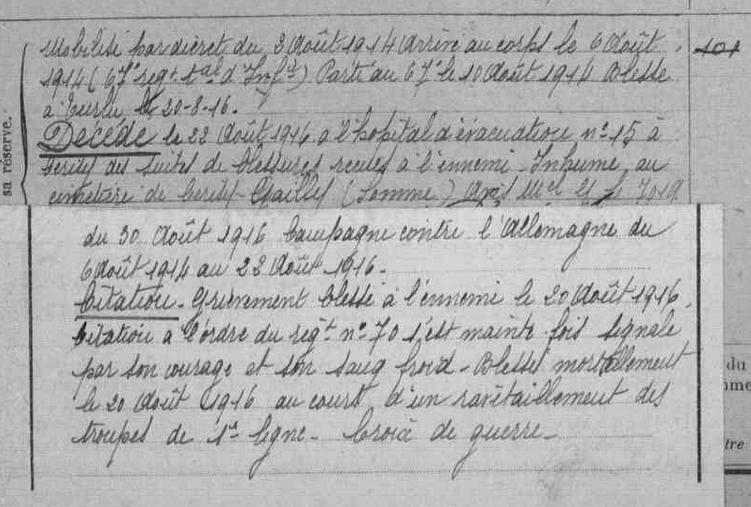 Mobilisé par décret du 3 Août 1914 Arrivé au corps le 6 Août
1914 (67e régt tal d'Infie) Parti au 67e le 10 Août 1914 Blessé
à Curlu le 20-8-16.
Décédé le 22 Août 1916 à l'hopital d'évacuation n° 15 à
Cerisy des suites de blessures recues à l'ennemi. Inhumé au
cimetière de Cerisy-Gailly (Somme) Avis Mel
du 30 Août 1916 Campagne contre l'Allemagne du
6 Août 1914 au 22 Août 1916.
Citation. Grièvement blessé à l'ennemi le 20 Août 1916.
Citation à l'ordre du régt n° 70 s'est mainte fois signalé
par son courage et son sang froid - Blessé mortellement
le 20 Août 1916 au cours d'un ravitaillement des
troupes de 1re ligne - Croix de guerre -
sa réserve.
101
du
tre